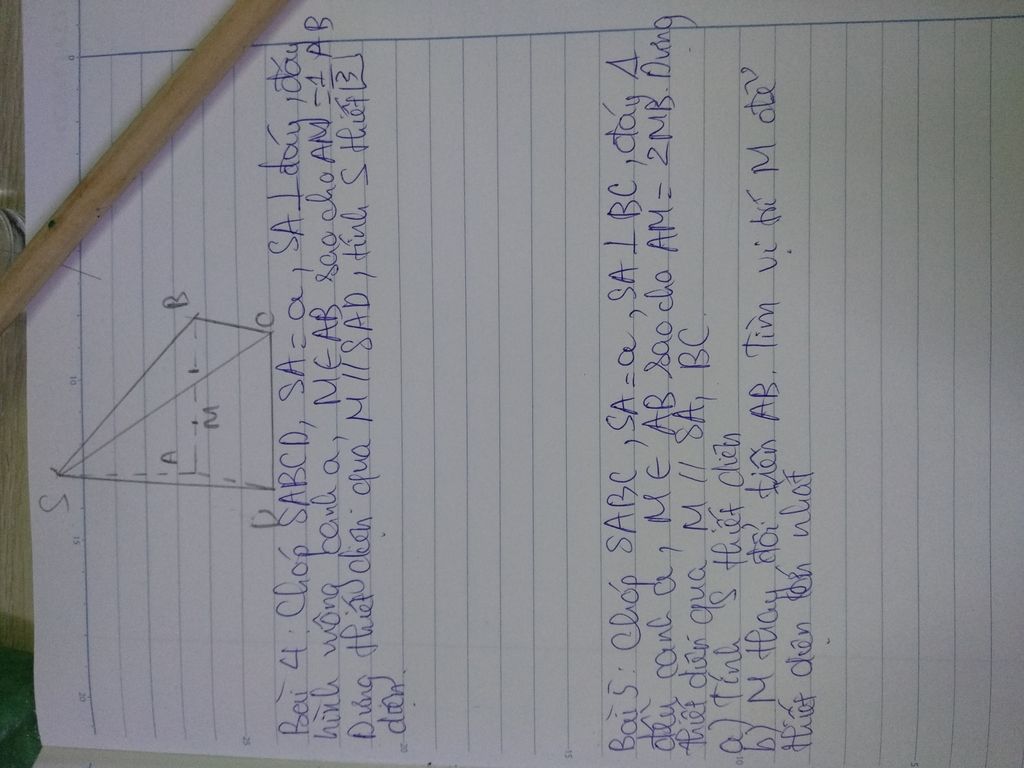 S
A
B
M
D
C
Bài 4: Chóp SABCD, SA = a, SA ⊥ đáy, đáy
hình vuông cạnh a, M ∈ AB sao cho AM = 1/3 AB
Dựng thiết diện qua M // SAD, tính S thiết
diện
Bài 5: Chóp SABC, SA = a, SA ⊥ BC, đáy Δ
đều cạnh a, M ∈ AB sao cho AM = 2MB. Dựng
thiết diện qua M // SA, BC
a) Tính S thiết diện
b) M thay đổi trên AB. Tìm vị trí M để
thiết diện lớn nhất